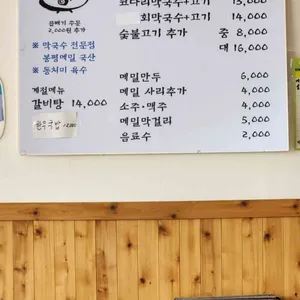 곱빼기 주문
2,000원 추가
※ 막국수 전문점
봉평메밀 국산
※ 동치미 육수
계절메뉴
갈비탕 14,000
코다리막국수+고기 15,000
회막국수+고기 14,000
숯불고기 추가 중 8,000
대 16,000
메밀만두 6,000
메밀 사리추가 4,000
소주·맥주 4,000
메밀막걸리 5,000
음료수 2,000